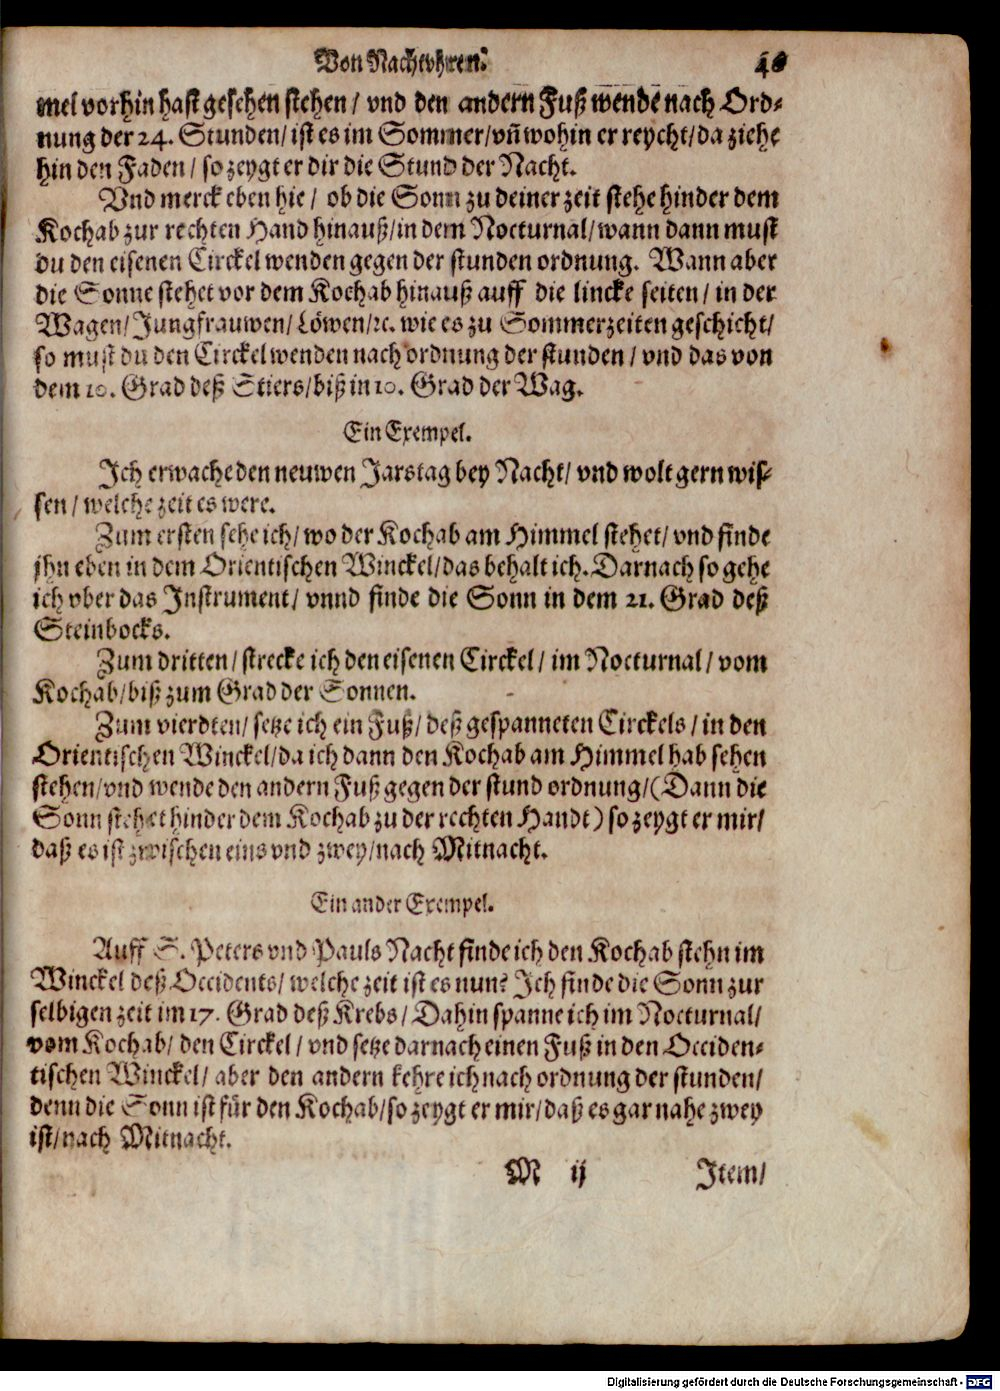 Von Nachtvhren. 46
mel vorhin hast gesehen stehen / vnd den andern Fuß wende nach Ord-
nung der 24. Stunden / ist es im Sommer / vn̄ wohin er reycht / da ziehe
hin den Faden / so zeygt er dir die Stund der Nacht.
Vnd merck eben hie / ob die Sonn zu deiner zeit stehe hinder dem
Kochab zur rechten Hand hinauß / in dem Nocturnal / wann dann must
du den eisenen Circkel wenden gegen der stunden ordnung. Wann aber
die Sonne stehet vor dem Kochab hinauß auff die lincke seiten / in der
Wagen / Jungfrauwen / Löwen / ꝛc. wie es zu Sommerzeiten geschicht /
so must du den Circkel wenden nach ordnung der stunden / vnd das von
dem 10. Grad deß Stiers / biß in 10. Grad der Wag.
Ein Exempel.
Ich erwache den neuwen Jarstag bey Nacht / vnd wolt gern wis-
sen / welche zeit es were.
Zum ersten sehe ich / wo der Kochab am Himmel stehet / vnd finde
jhn eben in dem Orientischen Winckel / das behalt ich. Darnach so gehe
ich vber das Instrument / vnnd finde die Sonn in dem 21. Grad deß
Steinbocks.
Zum dritten / strecke ich den eisenen Circkel / im Nocturnal / vom
Kochab / biß zum Grad der Sonnen.
Zum vierdten / setze ich ein Fuß / deß gespanneten Circkels / in den
Orientischen Winckel / da ich dann den Kochab am Himmel hab sehen
stehen / vnd wende den andern Fuß gegen der stund ordnung / (Dann die
Sonn stehet hinder dem Kochab zu der rechten Handt) so zeygt er mir /
daß es ist zwischen eins vnd zwey / nach Mitnacht.
Ein ander Exempel.
Auff S. Peters vnd Pauls Nacht finde ich den Kochab stehn im
Winckel deß Occidents / welche zeit ist es nun? Ich finde die Sonn zur
selbigen zeit im 17. Grad deß Krebs / Dahin spanne ich im Nocturnal /
vom Kochab / den Circkel / vnd setze darnach einen Fuß in den Occiden-
tischen Winckel / aber den andern kehre ich nach ordnung der stunden /
denn die Sonn ist für den Kochab / so zeygt er mir / daß es gar nahe zwey
ist / nach Mitnacht.
M ij Item /
Digitalisierung gefördert durch die Deutsche Forschungsgemeinschaft - DFG